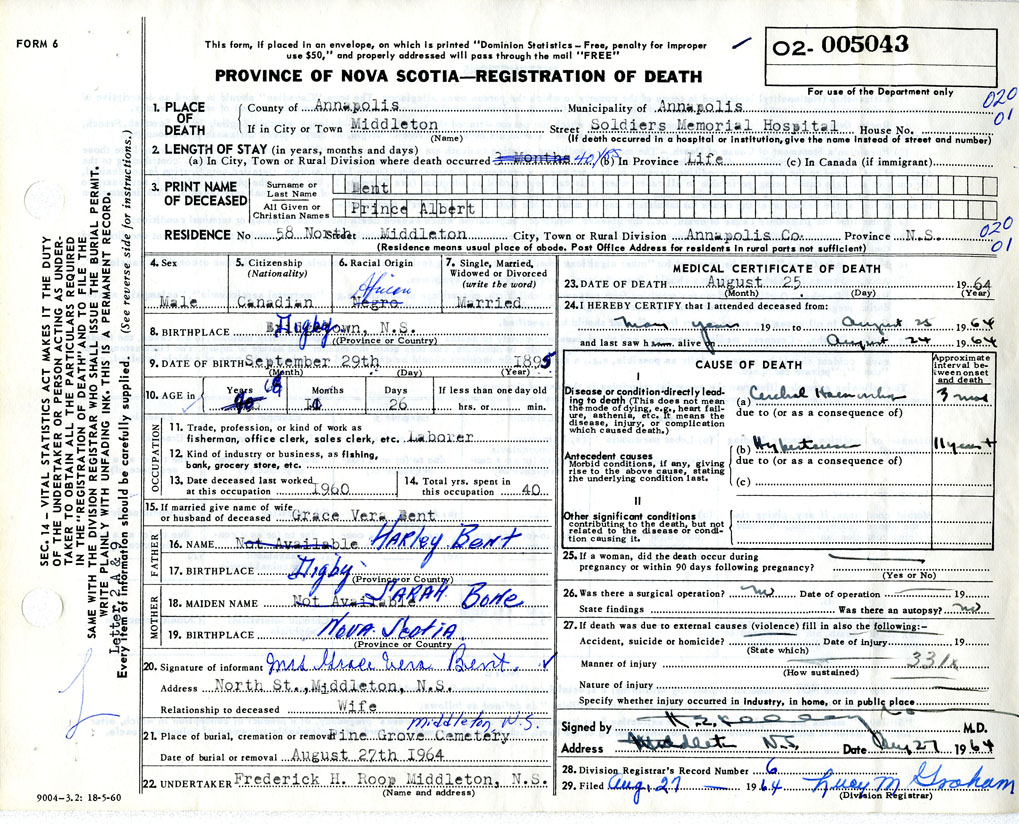 FORM 6
This form, if placed in an envelope, on which is printed "Dominion Statistics – Free, penalty for improper
use $50," and properly addressed will pass through the mail "FREE"
02- 005043
PROVINCE OF NOVA SCOTIA—REGISTRATION OF DEATH
For use of the Department only
020
01
1. PLACE OF DEATH
County of Annapolis Municipality of Annapolis
If in City or Town Middleton Street Soldiers Memorial Hospital House No.
(Name) (If death occurred in a hospital or institution, give the name instead of street and number)
2. LENGTH OF STAY (in years, months and days)
(a) In City, Town or Rural Division where death occurred 2 Months 40 yrs (b) In Province Life (c) In Canada (if immigrant)
3. PRINT NAME OF DECEASED
Surname or Last Name Bent
All Given or Christian Names Prince Albert
020
01
RESIDENCE No 58 North Street Middleton City, Town or Rural Division Annapolis Co. Province N.S.
(Residence means usual place of abode. Post Office Address for residents in rural parts not sufficient)
4. Sex
Male
5. Citizenship
(Nationality)
Canadian
6. Racial Origin
African
Negro
7. Single, Married, Widowed or Divorced
(write the word)
Married
8. BIRTHPLACE Digby N.S.
(Province or Country)
9. DATE OF BIRTH September 29th 1895
(Month) (Day) (Year)
10. AGE in
Years 68
Months
Days 26
If less than one day old
hrs. or min.
OCCUPATION
11. Trade, profession, or kind of work as
fisherman, office clerk, sales clerk, etc. Laborer
12. Kind of industry or business, as fishing,
bank, grocery store, etc.
13. Date deceased last worked
at this occupation 1960
14. Total yrs. spent in
this occupation 40
15. If married give name of wife
or husband of deceased Grace Vera Bent
FATHER
16. NAME Not Available Harley Bent
17. BIRTHPLACE Digby
(Province or Country)
MOTHER
18. MAIDEN NAME Not Available SARAH Bone
19. BIRTHPLACE Nova Scotia
(Province or Country)
20. Signature of informant Mrs Grace Vera Bent.
Address North St., Middleton, N.S.
Relationship to deceased Wife
Middleton N.S.
21. Place of burial, cremation or removal Pine Grove Cemetery
Date of burial or removal August 27th 1964
22. UNDERTAKER Frederick H. Roop Middleton, N.S.
(Name and address)
MEDICAL CERTIFICATE OF DEATH
23. DATE OF DEATH August 25 1964
(Month) (Day) (Year)
24. I HEREBY CERTIFY that I attended deceased from:
Many years 19 to August 25 1964
and last saw h alive August 24 1964
CAUSE OF DEATH
Approximate interval between onset and death
I
Disease or condition directly leading to death (This does not mean the mode of dying, e.g., heart failure, asthenia, etc. It means the disease, injury, or complication which caused death.)
(a) Cerebral Haemorrhage 3 mos
due to (or as a consequence of)
Antecedent causes
Morbid conditions, if any, giving rise to the above cause, stating the underlying condition last.
(b) Hypertension 11 years+
due to (or as a consequence of)
(c)
II
Other significant conditions
contributing to the death, but not related to the disease or condition causing it.
25. If a woman, did the death occur during
pregnancy or within 90 days following pregnancy?
(Yes or No)
26. Was there a surgical operation? no Date of operation 19
State findings Was there an autopsy? no
27. If death was due to external causes (violence) fill in also the following:–
Accident, suicide or homicide? Date of injury 19
(State which)
Manner of injury 331x
(How sustained)
Nature of injury
Specify whether injury occurred in industry, in home, or in public place
Signed by M.D.
Address Middleton N.S. Date Aug 27 1964
28. Division Registrar's Record Number 6
29. Filed Aug. 27 1964 Lucy M Graham
(Division Registrar)
SEC. 14 – VITAL STATISTICS ACT MAKES IT THE DUTY
OF THE UNDERTAKER OR PERSON ACTING AS UNDERTAKER TO OBTAIN ALL THE PARTICULARS REQUIRED
IN THE "REGISTRATION OF DEATH" AND TO FILE THE
SAME WITH THE DIVISION REGISTRAR WHO SHALL ISSUE THE BURIAL PERMIT.
WRITE PLAINLY WITH UNFADING INK. THIS IS A PERMANENT RECORD.
Letter, 2 A & 9
Every item of information should be carefully supplied. (See reverse side for instructions.)
9004–3.2: 18-5-60